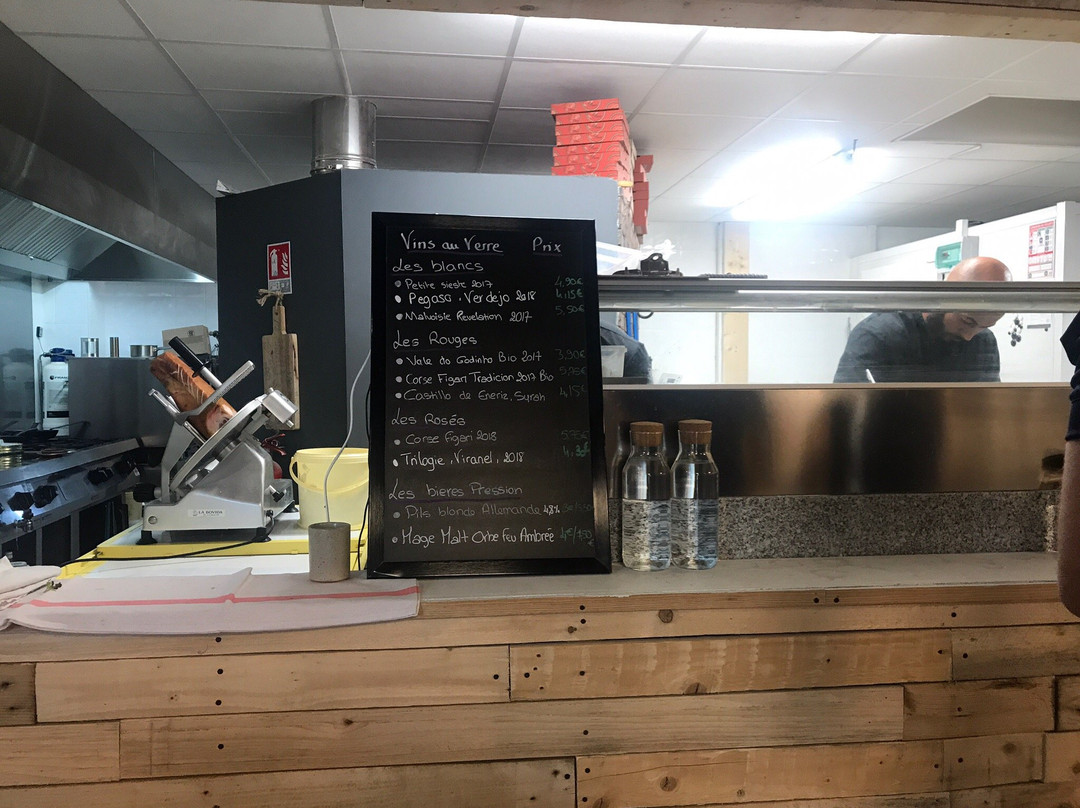 Vins au Verre Prix
Les blancs
Petite sieste 2017 4,90€
Pegaso, Verdejo 2018 4,15€
Malvoisie Revelation 2017 5,50€
Les Rouges
Vale do Godinho Bio 2017 3,90€
Corse Figari Tradicion 2017 Bio 5,75€
Castillo de Eneriz, Syrah 4,15€
Les Rosés
Corse Figari 2018 5,75€
Trilogie, Viranel, 2018
Les bieres Pression
Pils blonde Allemande 4,8%
Mage Malt Orbe Feu Ambrée